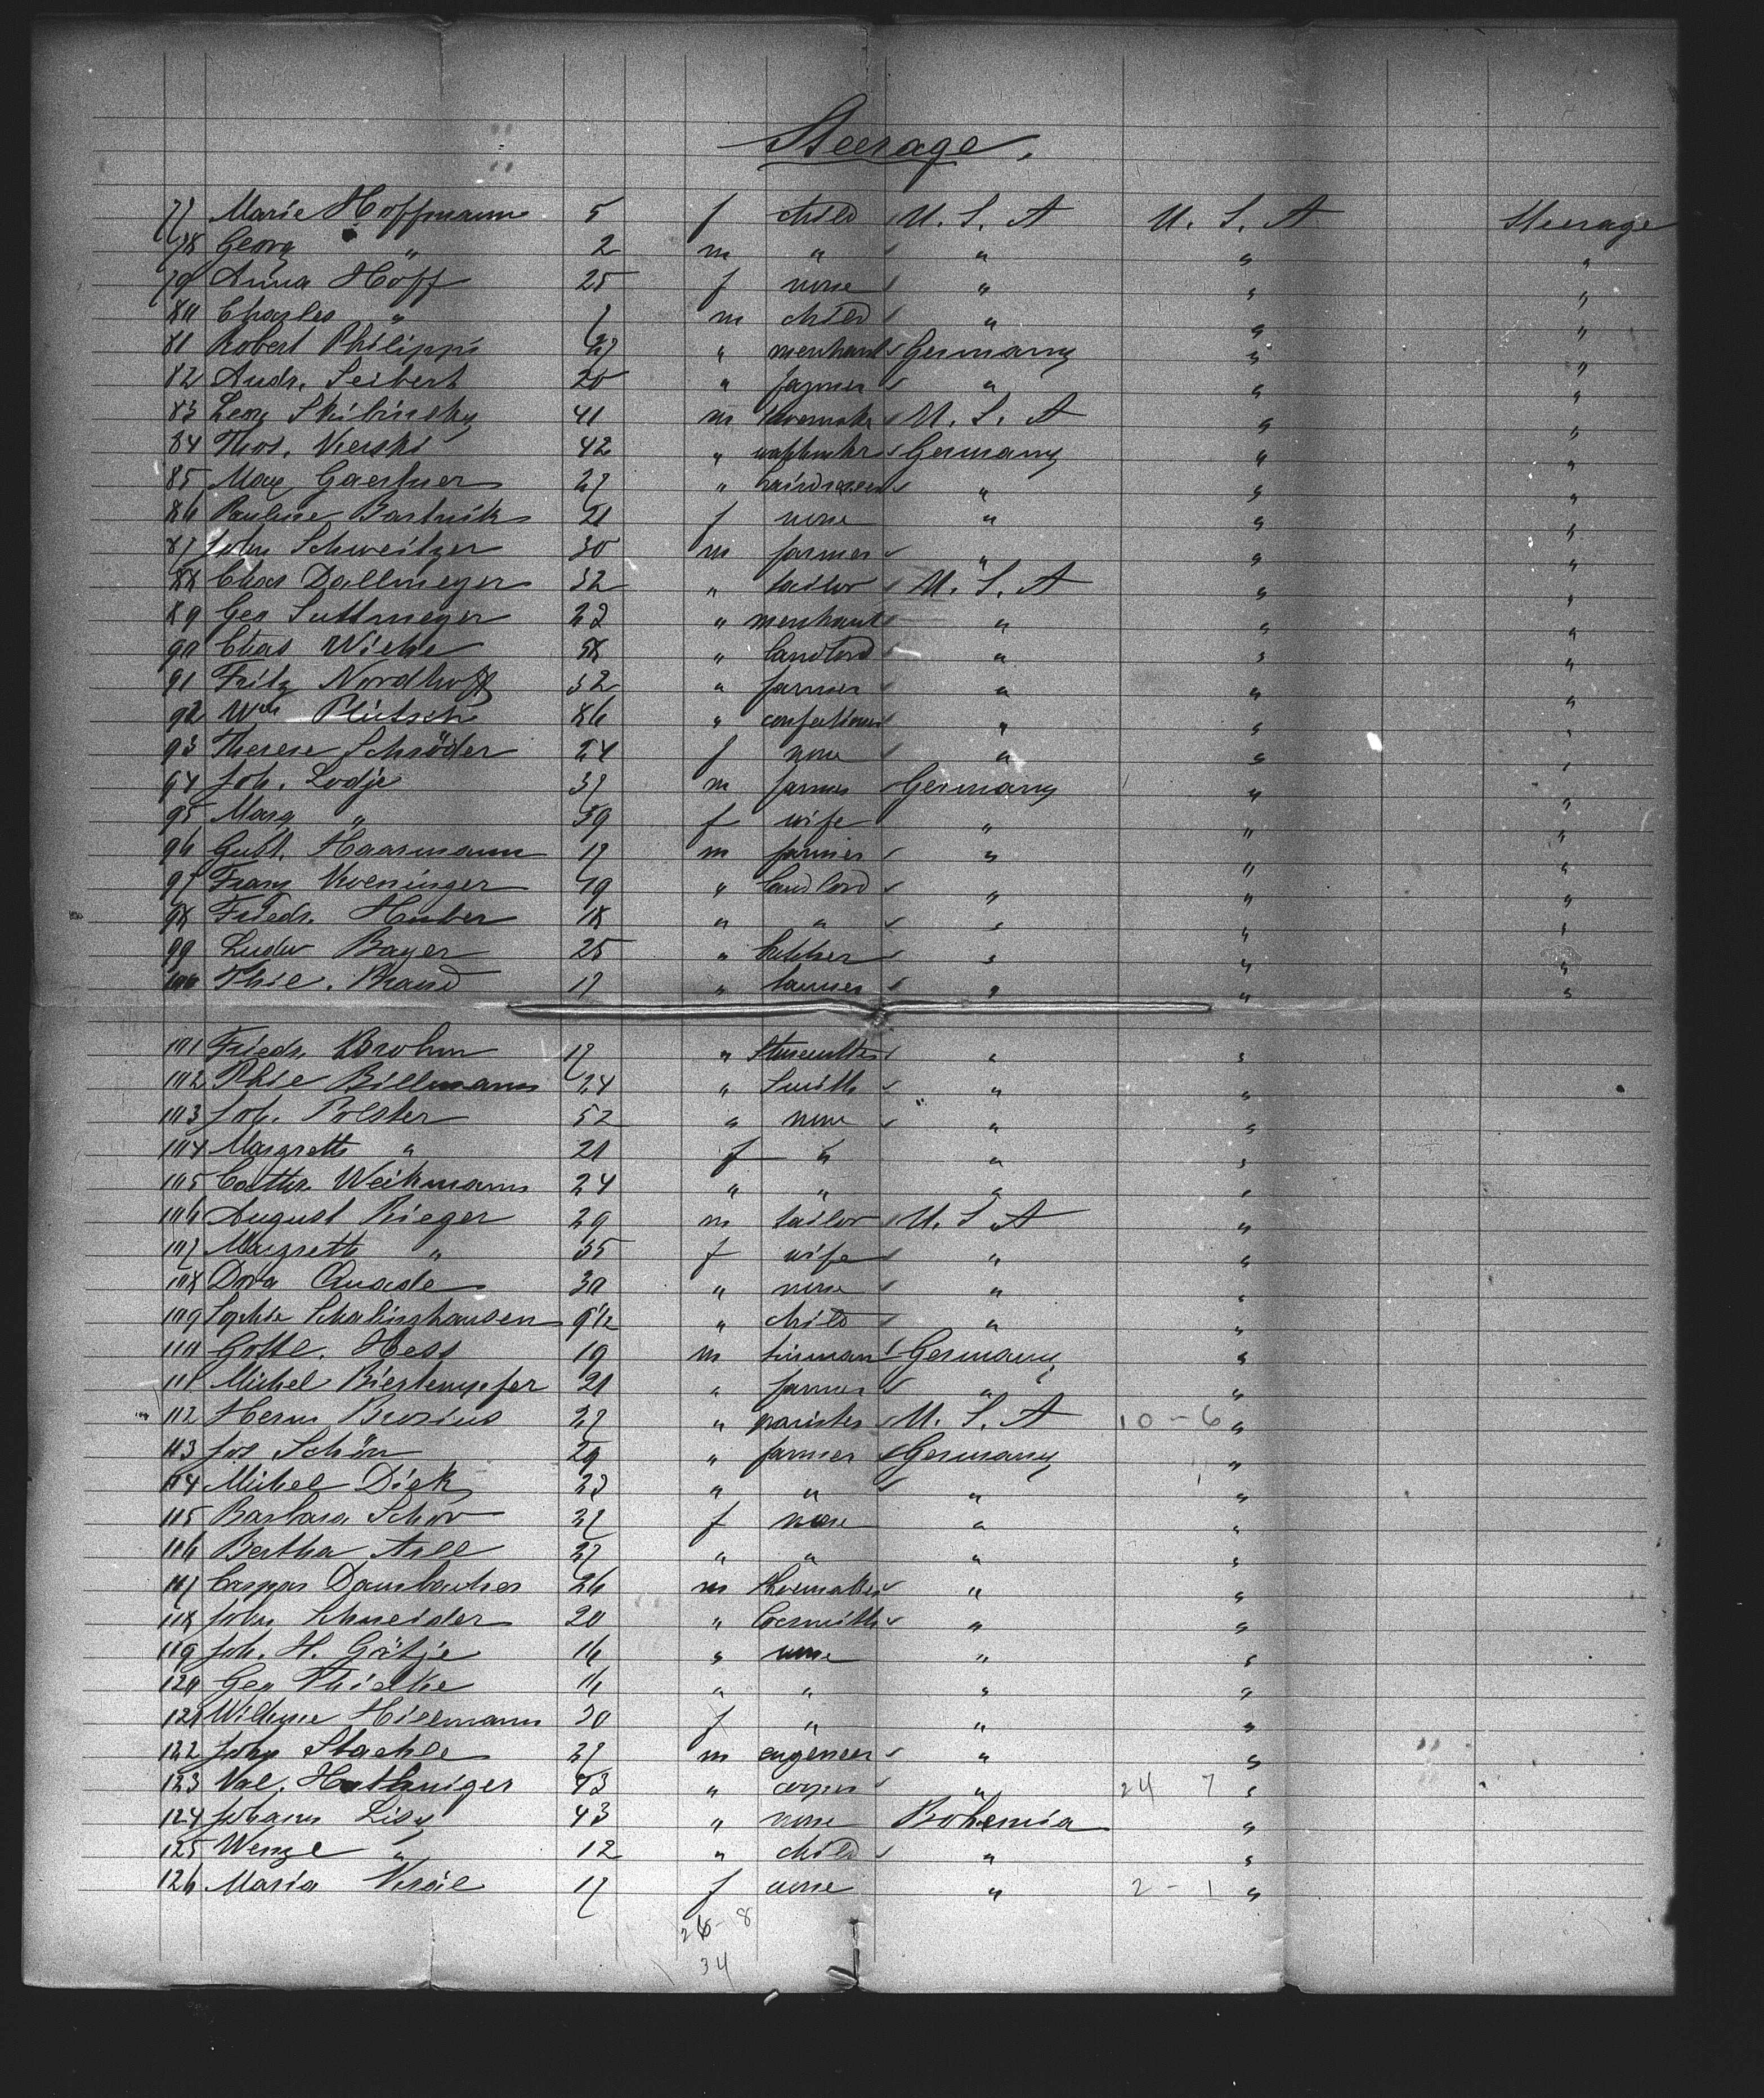 Steerage.
77 Marie Hoffmann 5 f child U. S. A U. S. A Steerage
78 Georg " 2 m " " " "
79 Anna Hoff 25 f none " " "
80 Charles " 7 m child " " "
81 Robert Philippi 27 " merchant Germany " "
82 Andr. Seibert 20 " farmer " " "
83 Leon Skibinsky 41 m shoemaker U. S. A " "
84 Thos. 42 " Germany " "
85 Max Gaertner 27 " hairdresser " " "
86 Pauline Bartnik 21 f none " " "
87 John Schweitzer 30 m farmer " " "
88 Chas Dallmeyer 32 " tailor U. S. A " "
89 Geo Suttmeyer 22 " merchant " " "
90 Chas Wiehe 58 " landlord " " "
91 Fritz Nordhoff 32 " farmer " " "
92 Wm 86 " " " "
93 Therese Schröder 24 f none " " "
94 Joh. Lodje 37 m farmer Germany " "
95 Marg " 39 f wife " " "
96 Gust. Haarmann 17 m farmer " " "
97 Franz 19 " landlord " " "
98 Friedr. Huber 18 " " " " "
99 Ludw Bayer 25 " butcher " " "
100 Phil. 17 " tanner " " "
101 Friedr. Brohm 17 " " "
102 Phil Billmann 24 " Smith " "
103 Joh. Polster 52 " none " "
104 Margreth " 21 f " " "
105 Cathr. Weikmann 24 " " " "
106 August Rieger 29 m tailor U. S. A "
107 Margreth " 35 f wife " "
108 Dora Quade 30 " none " "
109 Sophie Schalinghausen 9½ " child " "
110 Gottl. Hess 19 m Germany "
111 Michel Bierkempfer 21 " farmer " "
112 Herm Brosius 27 " painter U. S. A 10 - 6 "
113 Jos Schön 29 " farmer Germany "
114 Michel Dick 23 " " " "
115 Barbara Schor 27 f none " "
116 Bertha 27 " " " "
117 Caspar Dambacher 26 m shoemaker " "
118 John Schneider 20 " locsmith " "
119 Joh. H. Götje 16 " none " "
120 Geo Thielke 16 " " " "
121 Wilhme Hiselmann 30 f " " "
122 John Staehle 27 m engeneer " "
123 Val. 43 " " 24 7 "
124 Johann Lisy 43 " none Bohemia "
125 Wenzl " 12 " child " "
126 Maria Kral 17 f none " 2 - 1 "
26 - 8
34